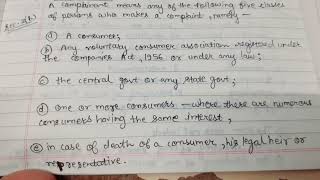 Sec-2(b)
A complainant means any of the following five classes
of persons who makes a complaint, namely -
a) A consumer;
b) Any voluntary consumer association registered under
the companies Act, 1956 or under any law;
c) the central govt or any state govt;
d) one or more consumers - where there are numerous
consumers having the same interest,
e) in case of death of a consumer, his legal heir or
representative.